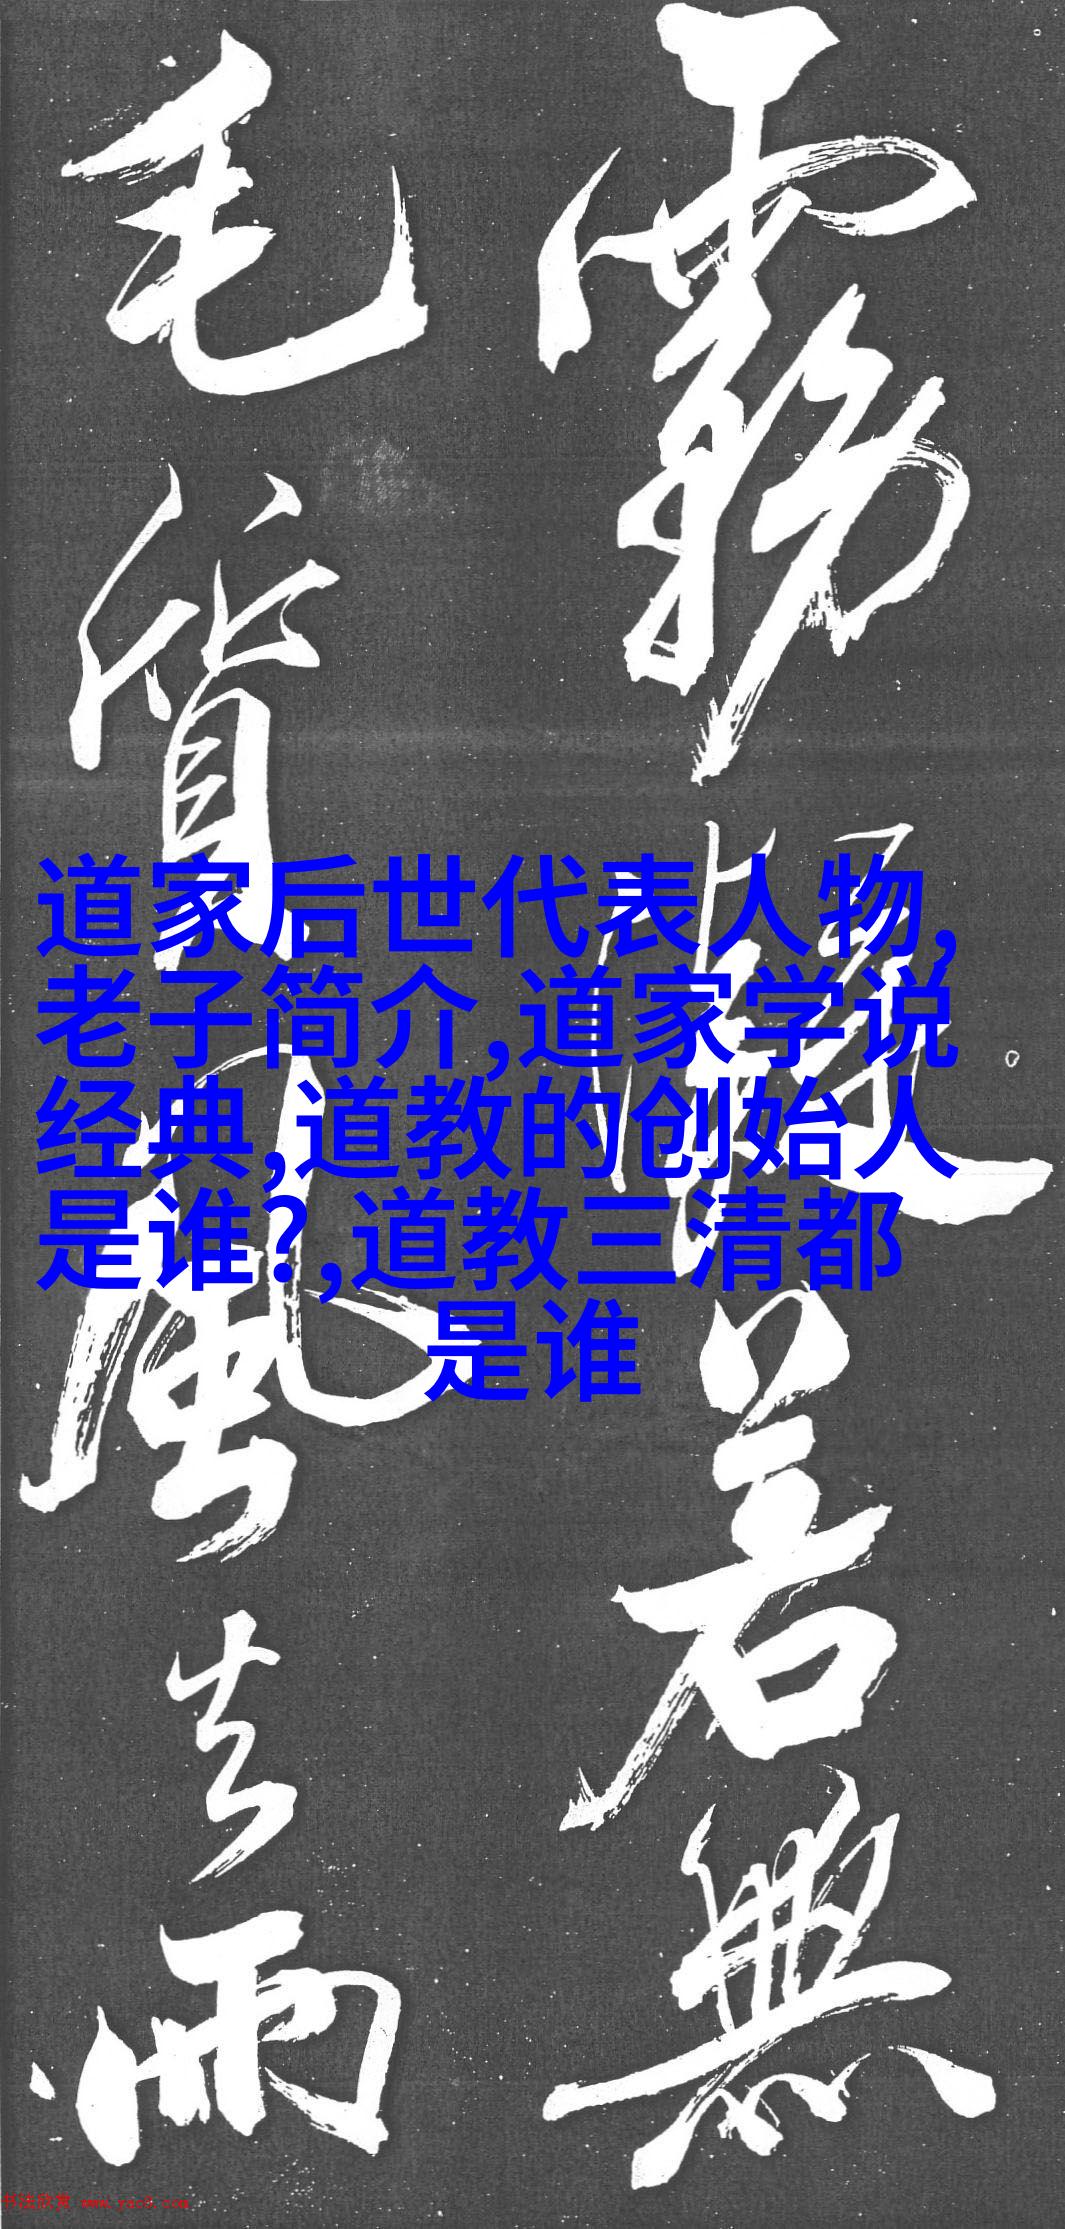 霧凝若無
毛質風去雨
道家后世代表人物,
老子简介,道家学说
经典,道教的创始人
是谁?,道教三清都
是谁
书法欣赏 www.yac8.com